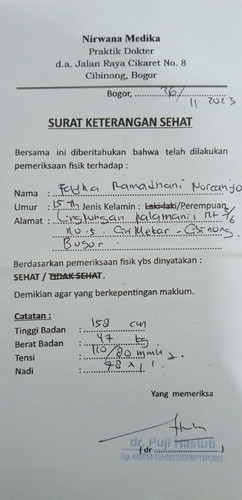 Nirwana Medika
Praktik Dokter
d.a. Jalan Raya Cikaret No. 8
Cibinong, Bogor
Bogor, 26/11 2023
SURAT KETERANGAN SEHAT
Bersama ini diberitahukan bahwa telah dilakukan
pemeriksaan fisik terhadap :
Nama : Ramadhani
Umur : 15 th Jenis Kelamin : Laki-laki/Perempuan
Alamat : Lingkungan Kalamanis Rt 7/6
no. 5. Cirimekar - Cibinong
Bogor.
Berdasarkan pemeriksaan fisik ybs dinyatakan :
SEHAT / TIDAK SEHAT.
Demikian agar yang berkepentingan maklum.
Catatan :
Tinggi Badan : 158 cm
Berat Badan : 47 kg.
Tensi : 110/80 mmHg.
Nadi : 78 x/1'.
Yang memeriksa
dr. Puji Hastuti
(dr )